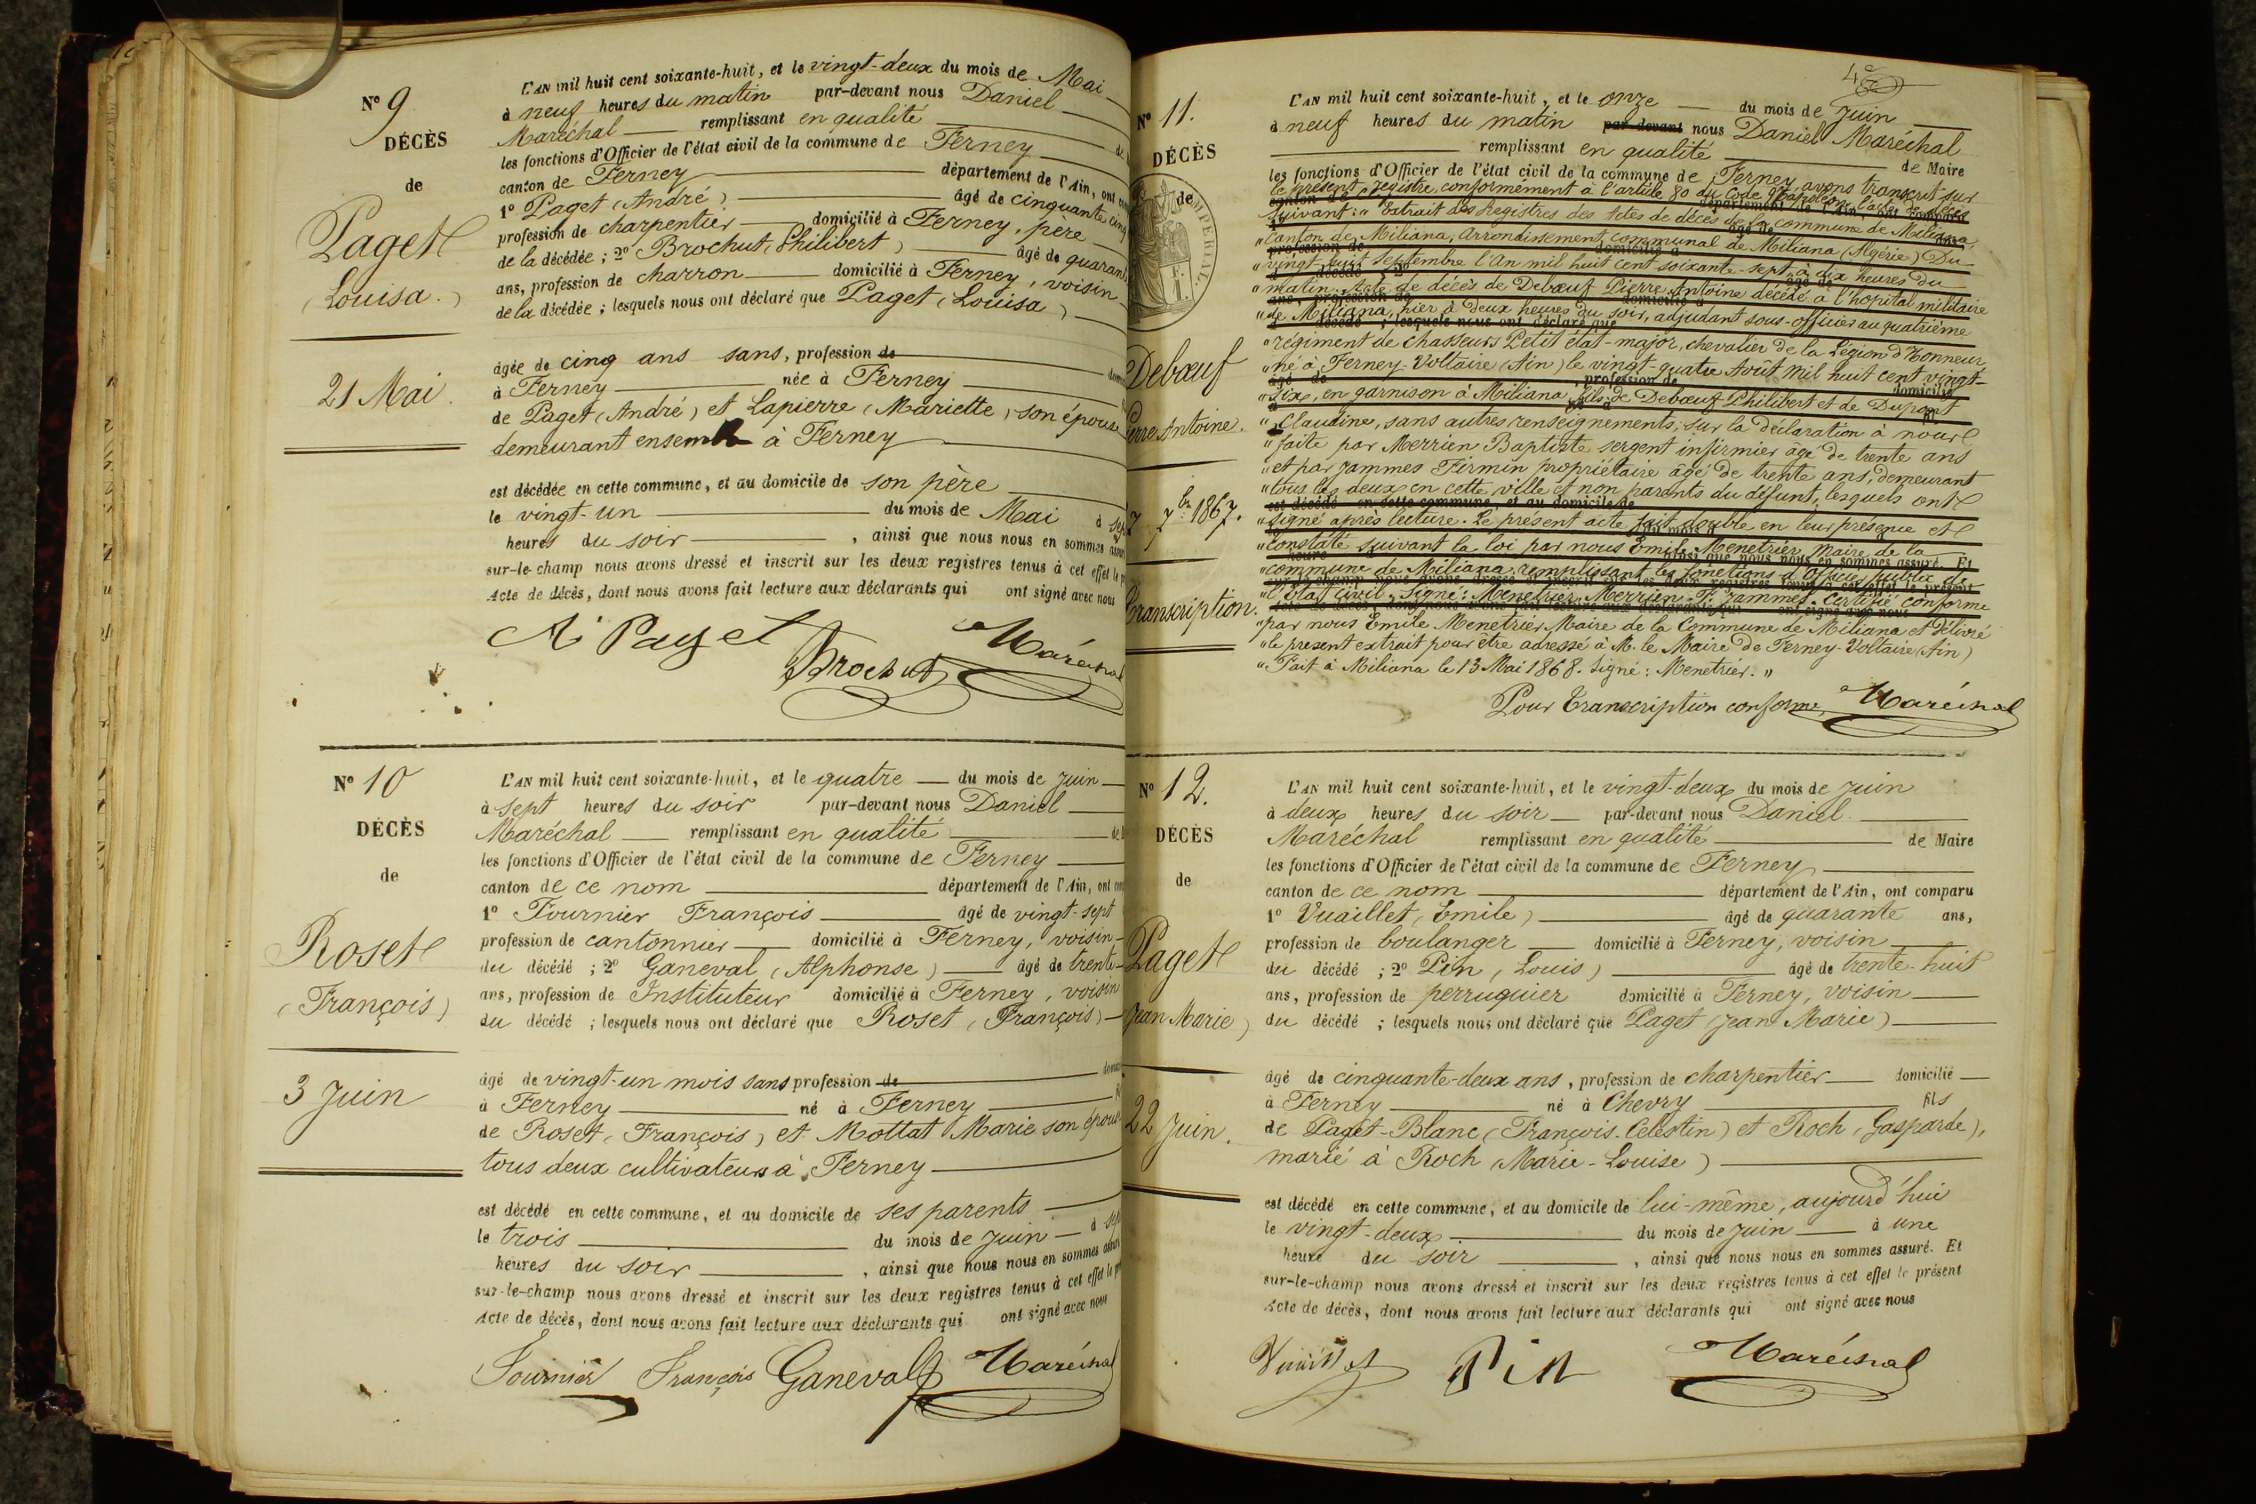 N° 9
DÉCÈS
de
Paget
(Louisa.)
21 Mai.
L'AN mil huit cent soixante-huit, et le vingt-deux du mois de Mai
à neuf heures du matin par-devant nous Daniel
Maréchal remplissant en qualité
les fonctions d'Officier de l'état civil de la commune de Ferney
canton de Ferney département de l'Ain, ont
1° Paget (André) âgé de cinquante cinq
profession de charpentier domicilié à Ferney, père
de la décédée ; 2° Brochut (Philibert) âgé de quarante
ans, profession de charron domicilié à Ferney, voisin
de la décédée ; lesquels nous ont déclaré que Paget (Louisa)
âgée de cinq ans sans, profession de
à Ferney née à Ferney
de Paget (André) et Lapierre (Mariette) son épouse
demeurant ensemble à Ferney
est décédée en cette commune, et au domicile de son père
le vingt-un du mois de Mai à
heures du soir, ainsi que nous nous en sommes
sur-le-champ nous avons dressé et inscrit sur les deux registres tenus à cet effet le
Acte de décès, dont nous avons fait lecture aux déclarants qui ont signé avec nous
A Paget Brochut Maréchal
N° 10
DÉCÈS
de
Roset
(François)
3 Juin
L'AN mil huit cent soixante-huit, et le quatre du mois de Juin
à sept heures du soir par-devant nous Daniel
Maréchal remplissant en qualité
les fonctions d'Officier de l'état civil de la commune de Ferney
canton de ce nom département de l'Ain, ont
1° Fournier François âgé de vingt-sept
profession de cantonnier domicilié à Ferney, voisin
du décédé ; 2° Ganeval (Alphonse) âgé de trente-
ans, profession de Instituteur domicilié à Ferney, voisin
du décédé ; lesquels nous ont déclaré que Roset (François)
âgé de vingt-un mois sans profession de
à Ferney né à Ferney
de Roset (François) et Mottat Marie son épouse
tous deux cultivateurs à Ferney
est décédé en cette commune, et au domicile de ses parents
le trois du mois de Juin à
heures du soir, ainsi que nous nous en sommes
sur-le-champ nous avons dressé et inscrit sur les deux registres tenus à cet effet le
Acte de décès, dont nous avons fait lecture aux déclarants qui ont signé avec nous
Fournier François Ganeval Maréchal
N° 11.
DÉCÈS
de
Debœuf
Pierre Antoine.
7bre 1867.
Transcription.
L'AN mil huit cent soixante-huit, et le onze du mois de Juin
à neuf heures du matin par-devant nous Daniel Maréchal
remplissant en qualité de Maire
les fonctions d'Officier de l'état civil de la commune de Ferney avons transcrit sur
le présent registre, conformément à l'article 80 du Code Napoléon l'acte de décès
suivant : " Extrait des Registres des Actes de décès de la commune de Miliana,
" canton de Miliana, Arrondissement communal de Miliana (Algérie) Du
" vingt huit Septembre l'An mil huit cent soixante-sept, à dix heures du
" matin. Acte de décès de Debœuf Pierre Antoine décédé à l'hopital militaire
" de Miliana, hier à deux heures du soir, adjudant sous-officier au quatrième
" régiment de chasseurs Petit état-major, chevalier de la Légion d'Honneur
" né à Ferney-Voltaire (Ain) le vingt-quatre Août mil huit cent vingt-
" six, en garnison à Miliana, fils de Debœuf Philibert et de Dupont
" Claudine, sans autres renseignements ; sur la déclaration à nous
" faite par Merrien Baptiste sergent infirmier âgé de trente ans
" et par Jammes Firmin propriétaire âgé de trente ans, demeurant
" tous les deux en cette ville et non parents du défunt, lesquels ont
" signé après lecture. Le présent acte fait double en leur présence et
" constaté suivant la loi par nous Emile Menetrier Maire de la
" commune de Miliana remplissant les fonctions d'Officier public de
" l'Etat civil. Signé : Menetrier. Merrien. F. Jammes. Certifié conforme
" par nous Emile Menetrier Maire de la Commune de Miliana et délivré
" le présent extrait pour être adressé à M. le Maire de Ferney-Voltaire (Ain)
" Fait à Miliana le 13 Mai 1868. Signé : Menetrier. "
Pour Transcription conforme, Maréchal
N° 12.
DÉCÈS
de
Paget
(Jean Marie)
22 Juin.
L'AN mil huit cent soixante-huit, et le vingt-deux du mois de Juin
à deux heures du soir par-devant nous Daniel
Maréchal remplissant en qualité de Maire
les fonctions d'Officier de l'état civil de la commune de Ferney
canton de ce nom département de l'Ain, ont comparu
1° Vuaillet (Emile) âgé de quarante ans,
profession de boulanger domicilié à Ferney, voisin
du décédé ; 2° Pin (Louis) âgé de trente-huit
ans, profession de perruquier domicilié à Ferney, voisin
du décédé ; lesquels nous ont déclaré que Paget (Jean Marie)
âgé de cinquante-deux ans, profession de charpentier domicilié
à Ferney né à Chevry fils
de Paget-Blanc (François-Celestin) et Roch (Gasparde),
marié à Roch (Marie-Louise)
est décédé en cette commune, et au domicile de lui-même, aujourd'hui
le vingt-deux du mois de Juin à une
heure du soir, ainsi que nous nous en sommes assuré. Et
sur-le-champ nous avons dressé et inscrit sur les deux registres tenus à cet effet le présent
Acte de décès, dont nous avons fait lecture aux déclarants qui ont signé avec nous
Vuaillet Pin Maréchal